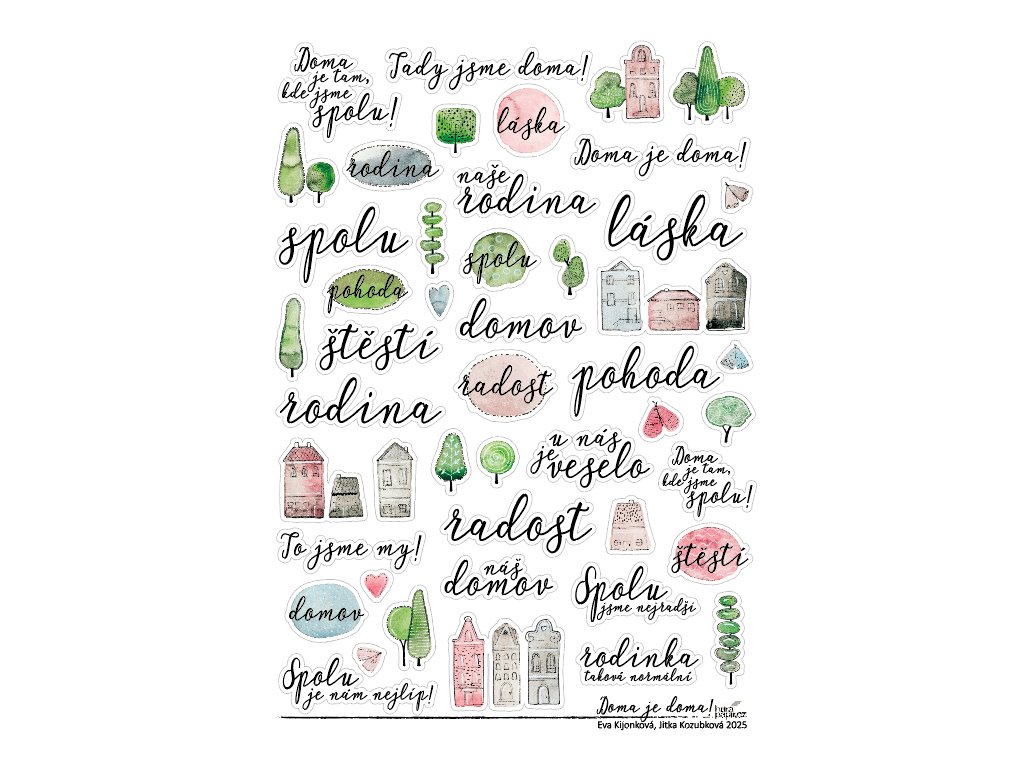 Doma
je tam,
kde jsme
spolu!
Tady jsme doma!
láska
Doma je doma!
rodina
naše
rodina
láska
spolu
spolu
pohoda
domov
štěstí
radost
pohoda
rodina
u nás
je
veselo
Doma
je tam,
kde jsme
spolu!
radost
To jsme my!
štěstí
náš
domov
Spolu
jsme nejradši
domov
rodinka
taková normální
Spolu
je nám nejlíp!
Doma je doma!
Eva Kijonková, Jitka Kozubková 2025